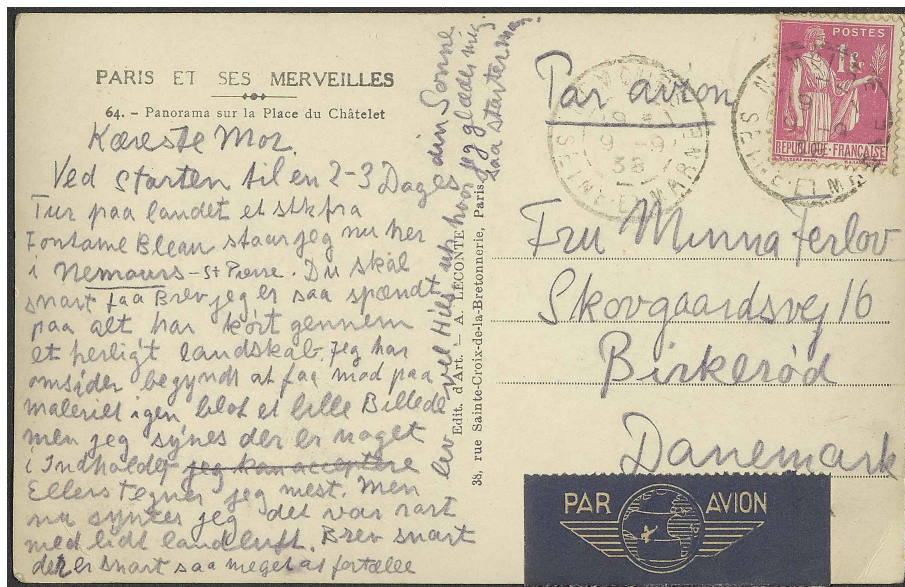 PARIS ET SES MERVEILLES
64. – Panorama sur la Place du Châtelet
Kæreste Mor.
Ved Starten til en 2-3 Dages
Tur paa landet et stk fra
Fontaine Bleau staar jeg nu her
i Nemours – St Pierre. Du skal
snart faa Brev jeg er saa spændt
paa alt har kørt gennem
et herligt landskab. Jeg har
omsider begyndt at faa mod paa
maleriet igen blot et lille Billede
men jeg synes der er noget
i Indholdet jeg kan acceptere
Ellers tegner jeg mest. Men
nu syntes jeg det var rart
med lidt landluft. Brev snart
der er snart saa meget at fortælle
lev vel Hils
hvor jeg glæder mig.
din Sonne
saa starter
Edit. d'Art. – A. LECONTE
38, rue Sainte-Croix-de-la-Bretonnerie, Paris
Par avion
POSTES
1F
REPUBLIQUE·FRANÇAISE
SEINE-ET-MARNE
9 -9
38
SEINE-ET-MARNE
Fru Minna Ferlov
Skovgaardsvej 16
Birkerød
Danemark
PAR AVION